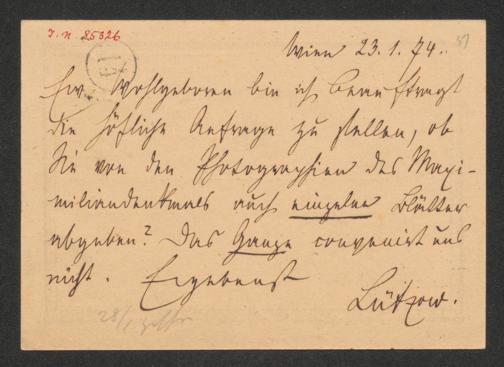 I. N. 85326
Wien 23.1.74.
Ew. Wohlgeboren bin ich beauftragt
die höfliche Anfrage zu stellen, ob
Sie von den Photographien des Maxi-
miliandenkmals auch einzelne Blätter
abgeben? Das Ganze convenirt uns
nicht. Ergebenst
Lützow.
28/1